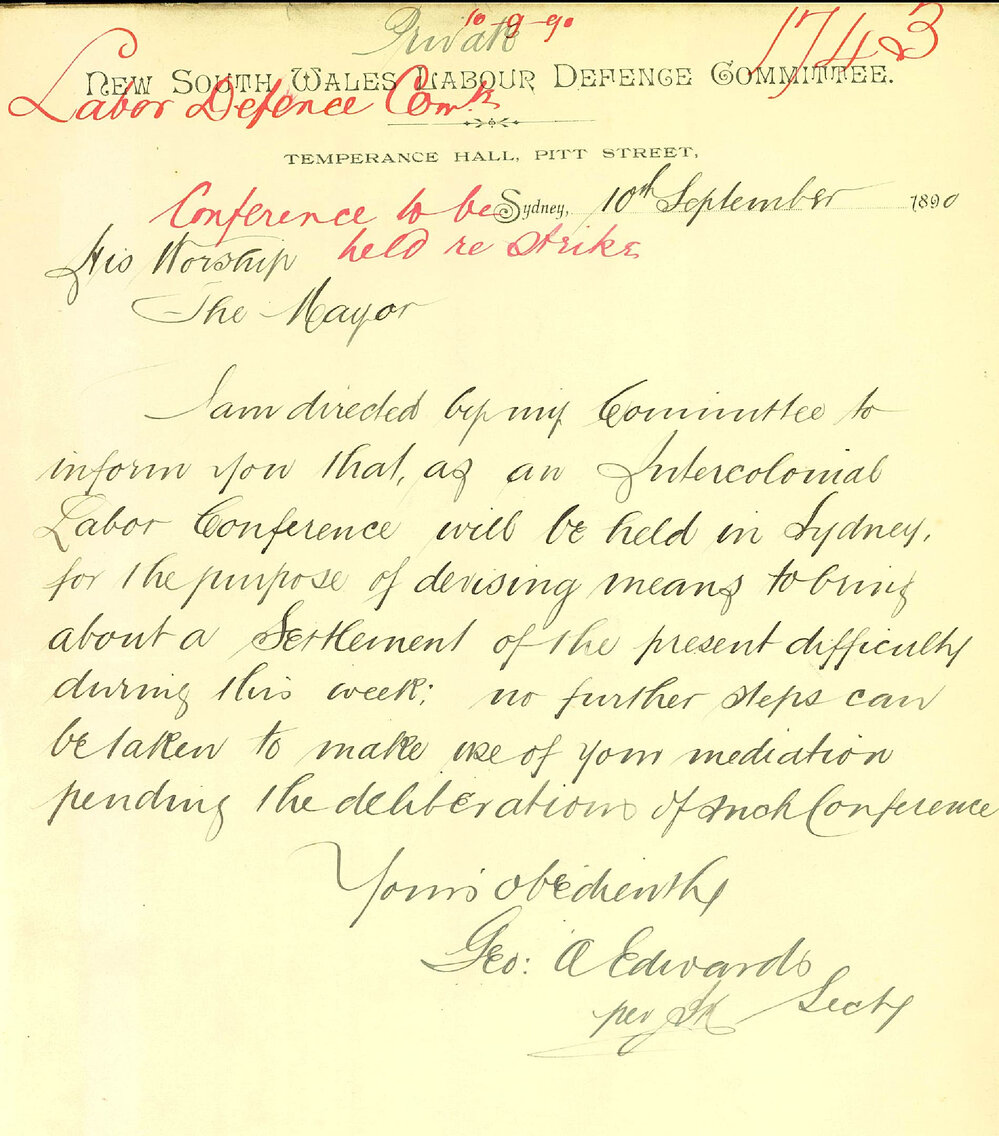 10-9-90
Private
1743
NEW SOUTH WALES LABOUR DEFENCE COMMITTEE.
Labor Defence Comte
TEMPERANCE HALL, PITT STREET,
Conference to be
Sydney, 10th September 1890
held re Strike
His Worship
The Mayor
I am directed by my Committee to
inform you that, as an Intercolonial
Labor Conference will be held in Sydney,
for the purpose of devising means to bring
about a Settlement of the present difficulty
during this week; no further steps can
be taken to make use of your mediation
pending the deliberations of such Conference
Yours obediently
Geo: A Edwards
per
Secty